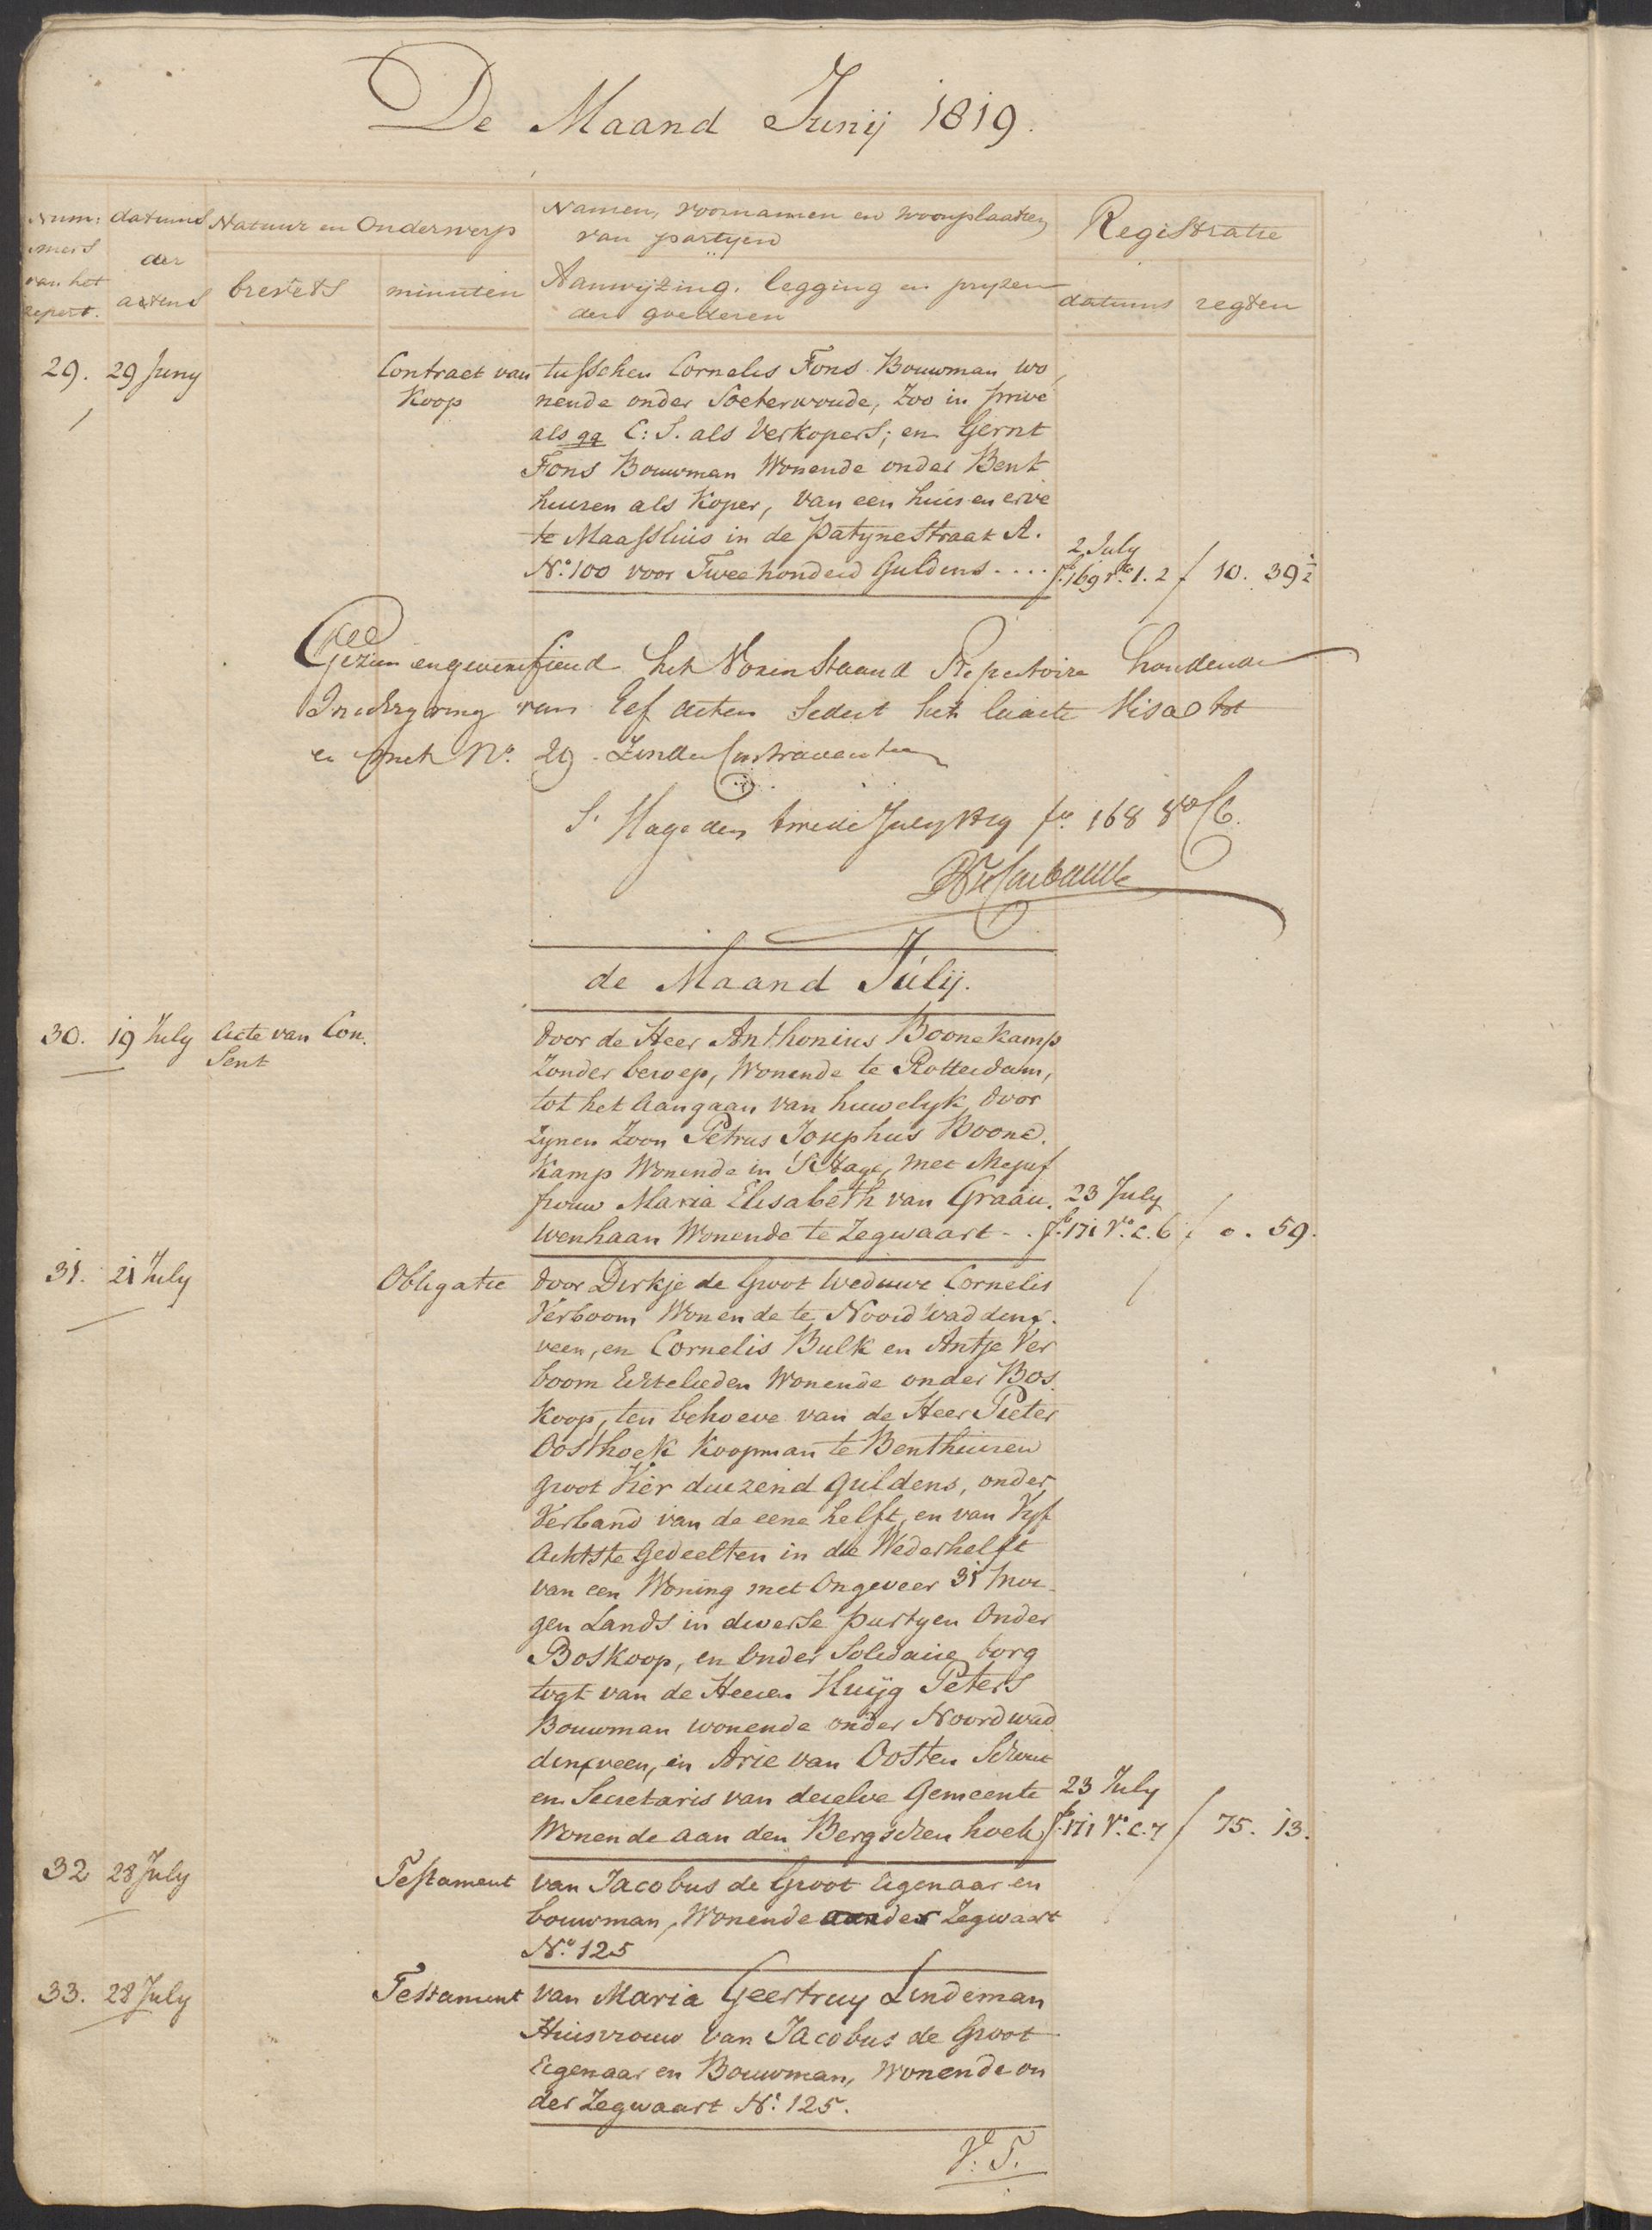 De Maand Junij 1819.
Num: datums Natuur en Onderwerp Namen, voornamen en woonplaatzen Registratie
mers der van partyen
van het actens brevets minuten Aanwyzing, legging en pryzen datums regten
repert. der goederen
29. 29 Juny Contract van tusschen Cornelis Fons Bouwman wo
Koop nende onder Soeterwoude, Zoo in privé
als qq C: S. als Verkopers; en Gerrit
Fons Bouwman Wonende onder Bent
huizen als Koper, van een huis en erve
te Maassluis in de Patynestraat A.
2 July
No. 100 voor Twee honderd Guldens .... fo. 169 ro. 1. 2 f 10. 39½
Gezien en geverifieerd het Vorenstaand Repertoire houdende
Inschryving van Elf acten sedert het laatste Visa tot
en met No. 29. Zonder Contraventie
S. Hage den tweede July 1819 fo. 168 vo C6.
de Maand Júlij.
30. 19 July Acte van Con. door de Heer Anthonius Boonekamp
Sent Zonder beroep, Wonende te Rotterdam,
tot het Aangaan van huwelyk, door
Zynen Zoon Petrus Josephus Boone.
Kamp Wonende in 'S Hage, met Mejuf
frouw Maria Elisabeth van Graau. 23 July
wenhaan Wonende te Zegwaart - . fo. 171 Vo. C. 6 f 0. 59.
31. 21 July Obligatie door Dirkje de Groot Weduwe Cornelis
Verboom Wonende te Noordwaddinx.
veen, en Cornelis Bulk en Antje Ver
boom Echtelieden Wonende onder Bos.
Koop, ten behoeve van de Heer Pieter
Oosthoek Koopman te Benthuizen
groot Vier duizend guldens, onder
Verband van de eene helft, en van Vyf
Achtste Gedeelten in de Wederhelft
van een Woning met Ongeveer 31 mor
gen Lands in diverse partyen Onder
Boskoop, en onder Solidaire borg
togt van de Heeren Huijg Peters
Bouwman wonende onder Noordwad
dinxveen, en Arie van Oosten Schout
en Secretaris van deselve Gemeente 23 July
Wonende aan den Bergschen hoek fo. 171 Vo. C. 7 f 75. 13.
32 28 July Testament van Jacobus de Groot Eigenaar en
bouwman, Wonende onder Zegwaart
No. 125
33. 28 July Testament van Maria Geertruy Lindeman
Huisvrouw van Jacobus de Groot
Eigenaar en Bouwman, Wonende on
der Zegwaart No. 125.
V: T.